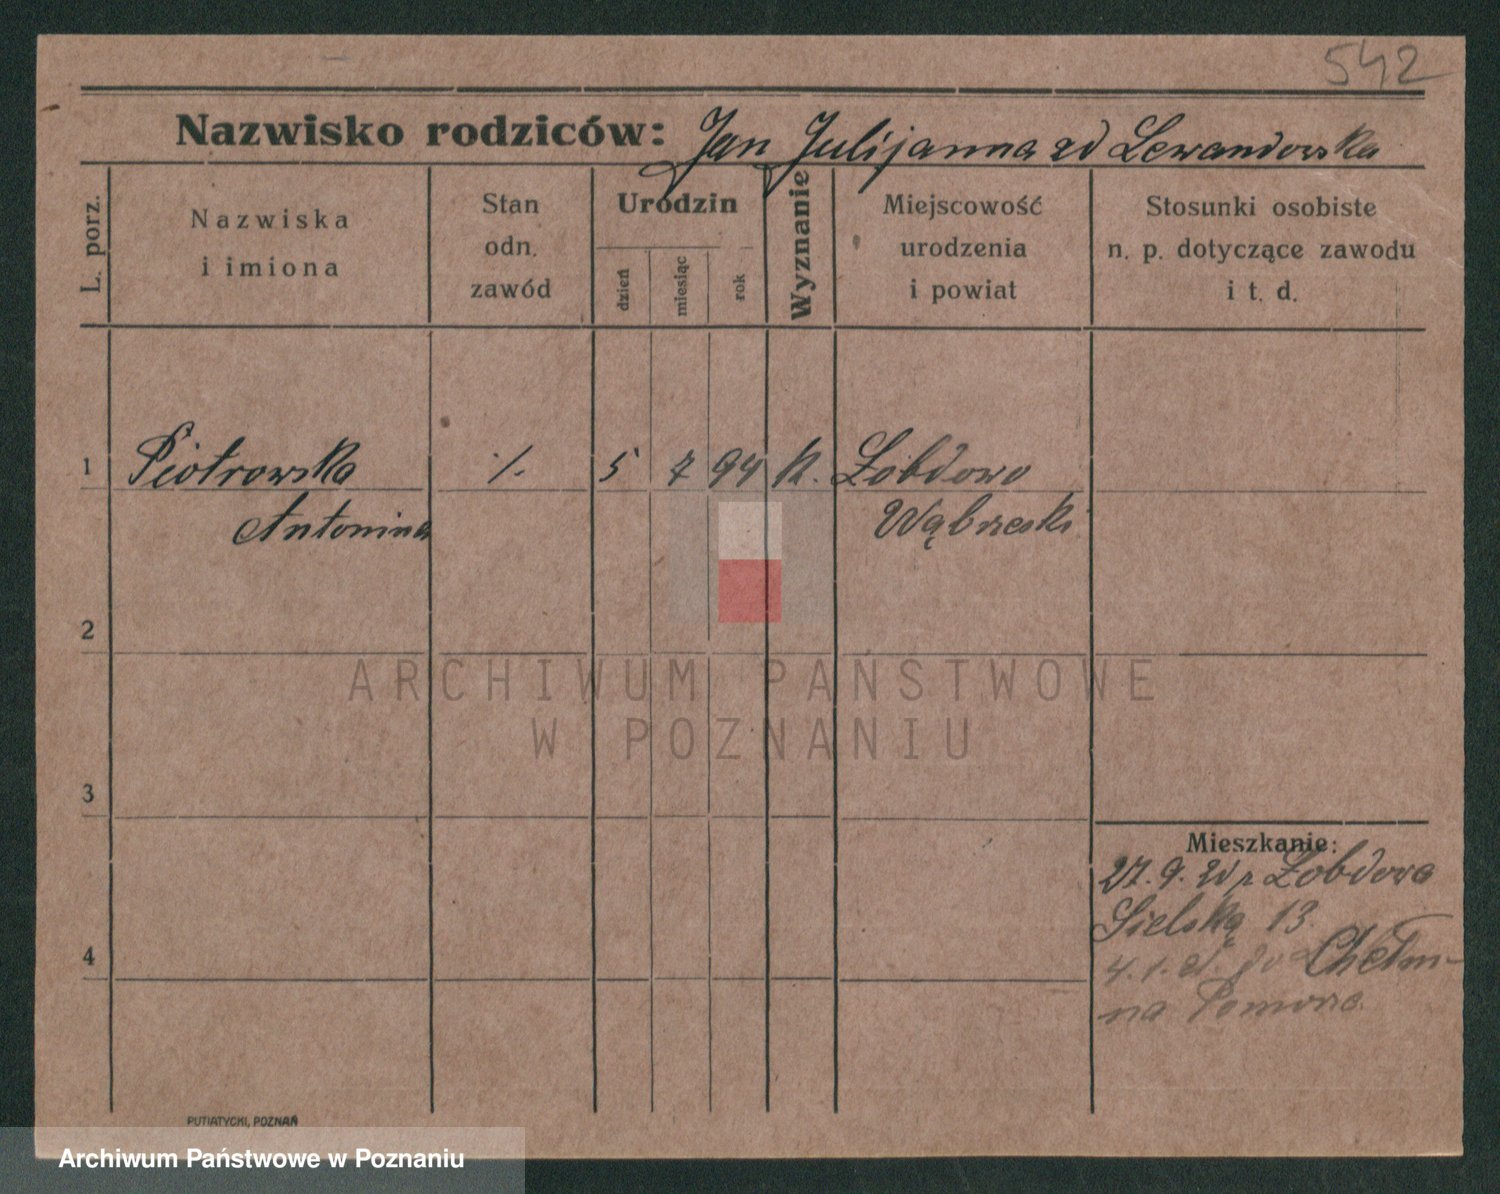 542
Nazwisko rodziców: Jan Julijanna zd Lewandowska
L. porz.
Nazwiska
i imiona
Stan
odn.
zawód
Urodzin
dzień
miesiąc
rok
Wyznanie
Miejscowość
urodzenia
i powiat
Stosunki osobiste
n. p. dotyczące zawodu
i t. d.
1 Piotrowska /. 5 7 94 k. Łobdowo
Antonina Wąbrzeski
2
ARCHIWUM PAŃSTWOWE
W POZNANIU
3
Mieszkanie:
27. 9. 20 z Łobdowa
Sielska 13.
4
4. 1. do Chełm-
na Pomorze.
PUTIATYCKI, POZNAŃ
Archiwum Państwowe w Poznaniu